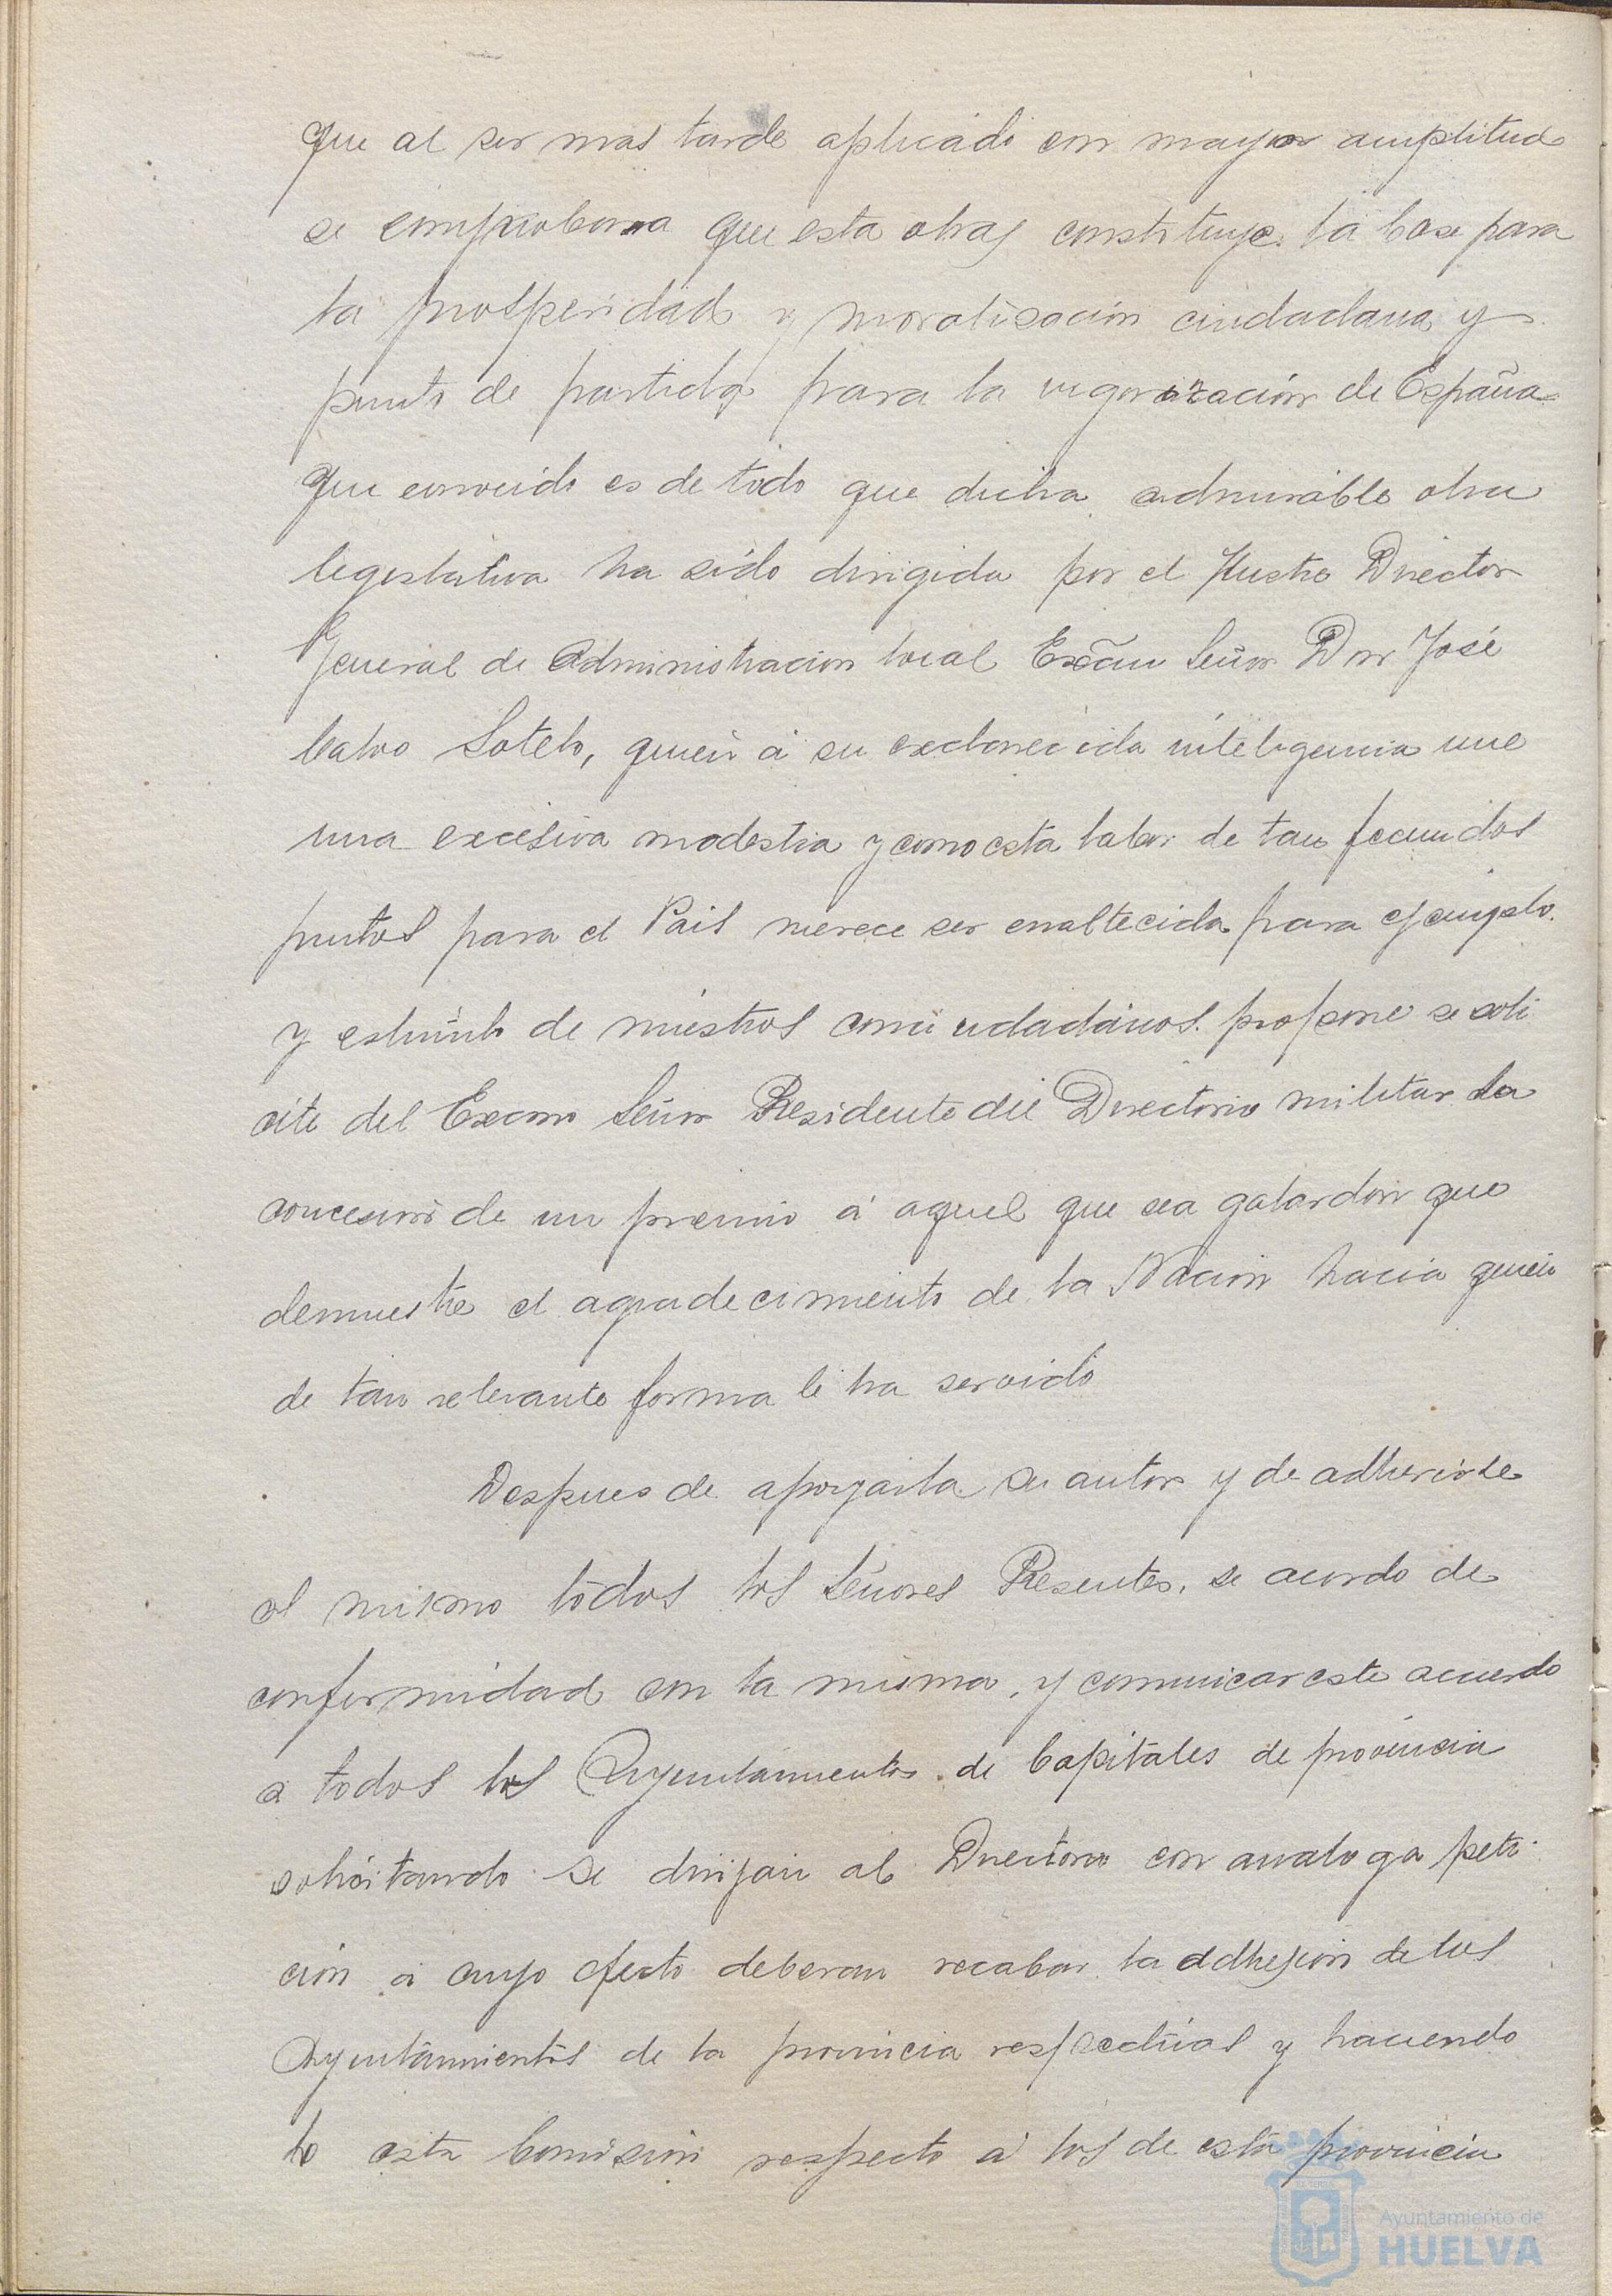 que al ser mas tarde aplicado con mayor amplitud
se comprobara que esta obra, constituye la base para
la prosperidad y moralisacion ciudadana, y
punto de partida para la vigorización de España
que conocido es de todo que dicha admirable obra
legislativa ha sido dirigida por el Ilustre Director
General de Administracion local Excmo Señor Don José
Calvo Sotelo, quien á su esclarecida inteligencia une
una excesiva modestia y como esta labor de tan fecundos
frutos para el Pais merece ser enaltecida para ejemplo
y estimulo de nuestros conciudadanos. propone se soli
cite del Excmo Señor Presidente del Directorio militar la
concesion de un premio á aquel que sea galardon que
demuestre el agradecimiento de la Nacion hacia quien
de tan relevante forma le ha servido
Despues de apoyarla su autor y de adherirse
al mismo todos los Señores Presentes, se acordo de
conformidad con la misma, y comunicar este acuerdo
a todos los Ayuntamientos de Capitales de provincia
solicitando se dirijan al Directorio con analoga peti
ción á cuyo efecto deberan recabar la adhesion de los
Ayuntamientos de la provincia respectivas y haciendo
lo esta Comision respecto á los de esta provincia
Ayuntamiento de
HUELVA